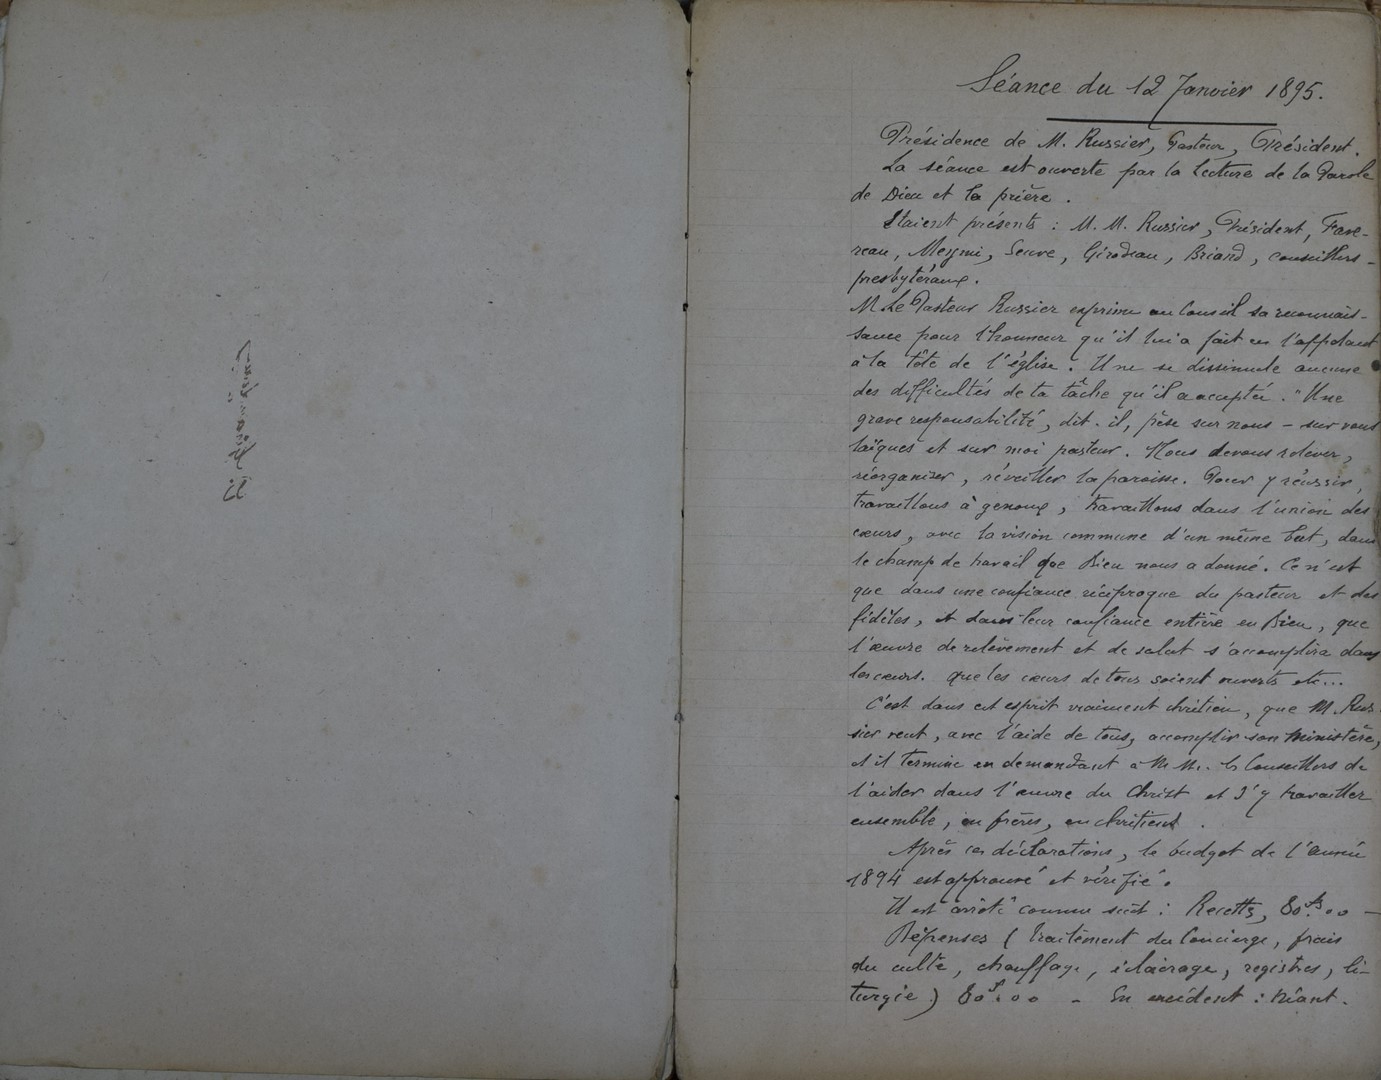 Séance du 12 Janvier 1895.
Présidence de M. Russier, Pasteur, Président.
La séance est ouverte par la lecture de la Parole
de Dieu et la prière.
Etaient présents : M. M. Russier, Président, Fave-
reau, Meymi, Seuve, Girodeau, Briand, conseillers-
presbytéraux.
M. Le Pasteur Russier exprime au Conseil sa reconnais-
sance pour l'honneur qu'il lui a fait en l'appelant
à la tête de l'église. Il ne se dissimule aucune
des difficultés de la tâche qu'il a acceptée. "Une
grave responsabilité, dit-il, pèse sur nous – sur vous
laïques et sur moi pasteur. Nous devons relever,
réorganiser, réveiller la paroisse. Pour y réussir,
travaillons à genoux, travaillons dans l'union des
cœurs, avec la vision commune d'un même but, dans
le champ de travail que Dieu nous a donné. Ce n'est
que dans une confiance réciproque du pasteur et des
fidèles, et dans leur confiance entière en Dieu, que
l'œuvre de relèvement et de salut s'accomplira dans
les cœurs. Que les cœurs de tous soient ouverts etc...
C'est dans cet esprit vraiment chrétien, que M. Rus-
sier veut, avec l'aide de tous, accomplir son ministère,
et il termine en demandant à M M. les Conseillers de
l'aider dans l'œuvre du Christ et d'y travailler
ensemble, en frères, en chrétiens.
Après ces déclarations, le budget de l'année
1894 est approuvé et vérifié.
Il est arrêté comme suit : Recettes, 80 fs. 00 –
Dépenses (traitement du Concierge, frais
du culte, chauffage, éclairage, registres, li-
turgie) 80 f. 00 – En excédent : Néant.